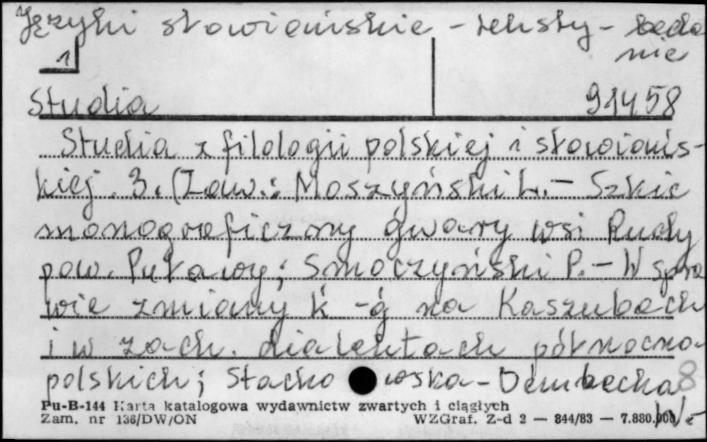 Języki słowiańskie - teksty - bada
nie
1
Studia
91458
Studia z filologii polskiej i słowiańs-
kiej. 3. (Zaw.: Moszyński L. - Szkic
monograficzny gwary wsi Rudy
pow. Puławy; Smoczyński P. - W spra
wie zmiany ḱ -ǵ na Kaszubach
i w zach. dialektach północno-
polskich; Stachowska-Dembecka
8
Pu-B-144 Karta katalogowa wydawnictw zwartych i ciągłych
Zam. nr 136/DW/ON WZGraf. Z-d 2 — 844/83 — 7.880.000